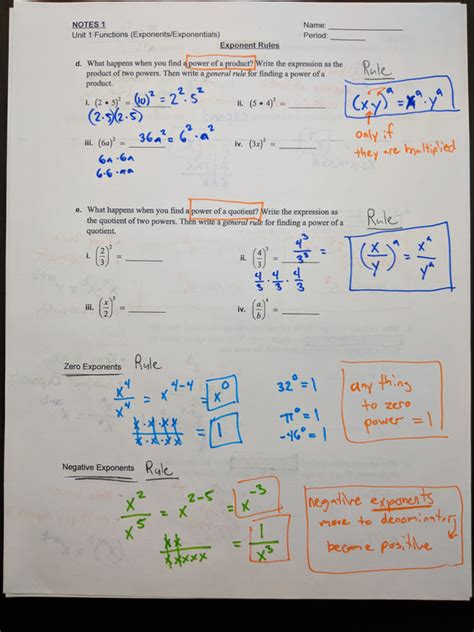 NOTES 1
Name:
Unit 1 Functions (Exponents/Exponentials)
Period:
Exponent Rules
d. What happens when you find a power of a product? Write the expression as the
product of two powers. Then write a general rule for finding a power of a
product.
Rule
i. (2 • 5)² = (10)² = 2² · 5²
(2·5)(2·5)
ii. (5 • 4)³ =
(xy)ᵃ = xᵃ · yᵃ
only if
they are multiplied
iii. (6a)² = 36a² = 6² · a²
6a · 6a
6·6 · aa
iv. (3x)² =
e. What happens when you find a power of a quotient? Write the expression as
the quotient of two powers. Then write a general rule for finding a power of a
quotient.
Rule
i. (2/3)² =
ii. (4/3)³ = 4³/3³ =
4/3 · 4/3 · 4/3
(x/y)ᵃ = xᵃ/yᵃ
iii. (x/2)³ =
iv. (a/b)⁴ =
Zero Exponents Rule
x⁴/x⁴ = x⁴⁻⁴ = x⁰
x·x·x·x/x·x·x·x = 1
32⁰ = 1
π⁰ = 1
-46⁰ = 1
any thing
to zero
power = 1
Negative Exponents Rule
x²/x⁵ = x²⁻⁵ = x⁻³
xx/xxxxx = 1/x³
negative exponents
move to denominator,
become positive